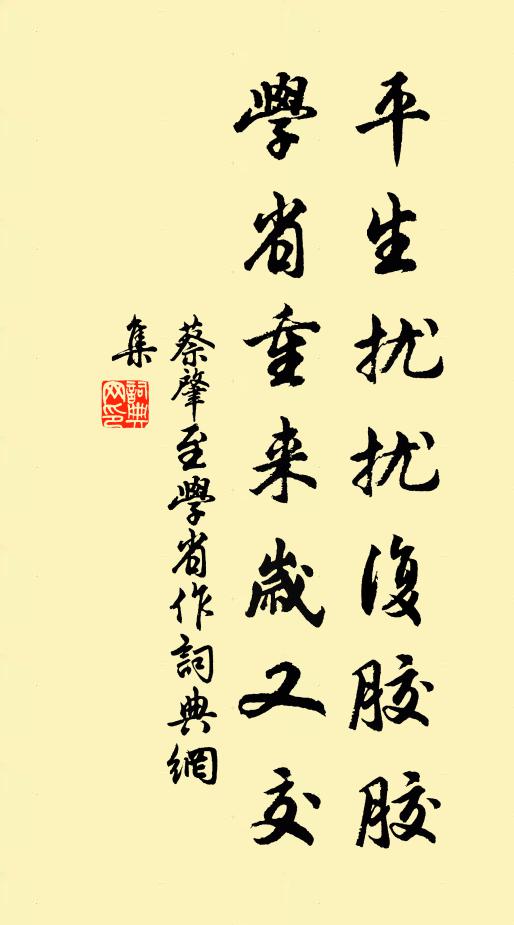 平生扰扰復胶胶
學省重来歲又交
蔡肇至學省作詞典網
集
詞典網印